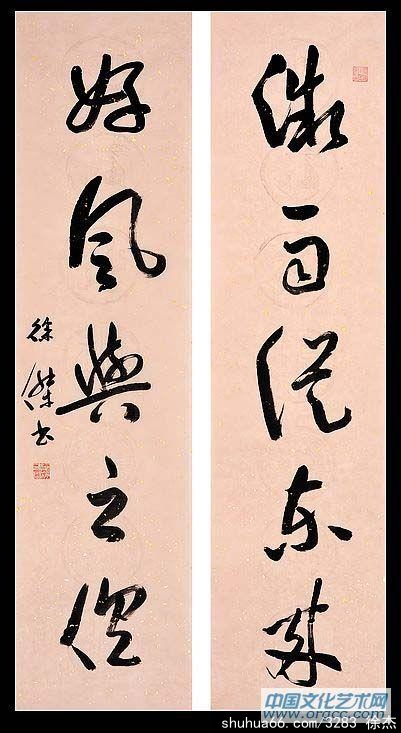 微雨从东来
好风与之俱
徐杰书
中国文化艺术网
www.orgcc.com
shuhua66.com/3283 徐杰